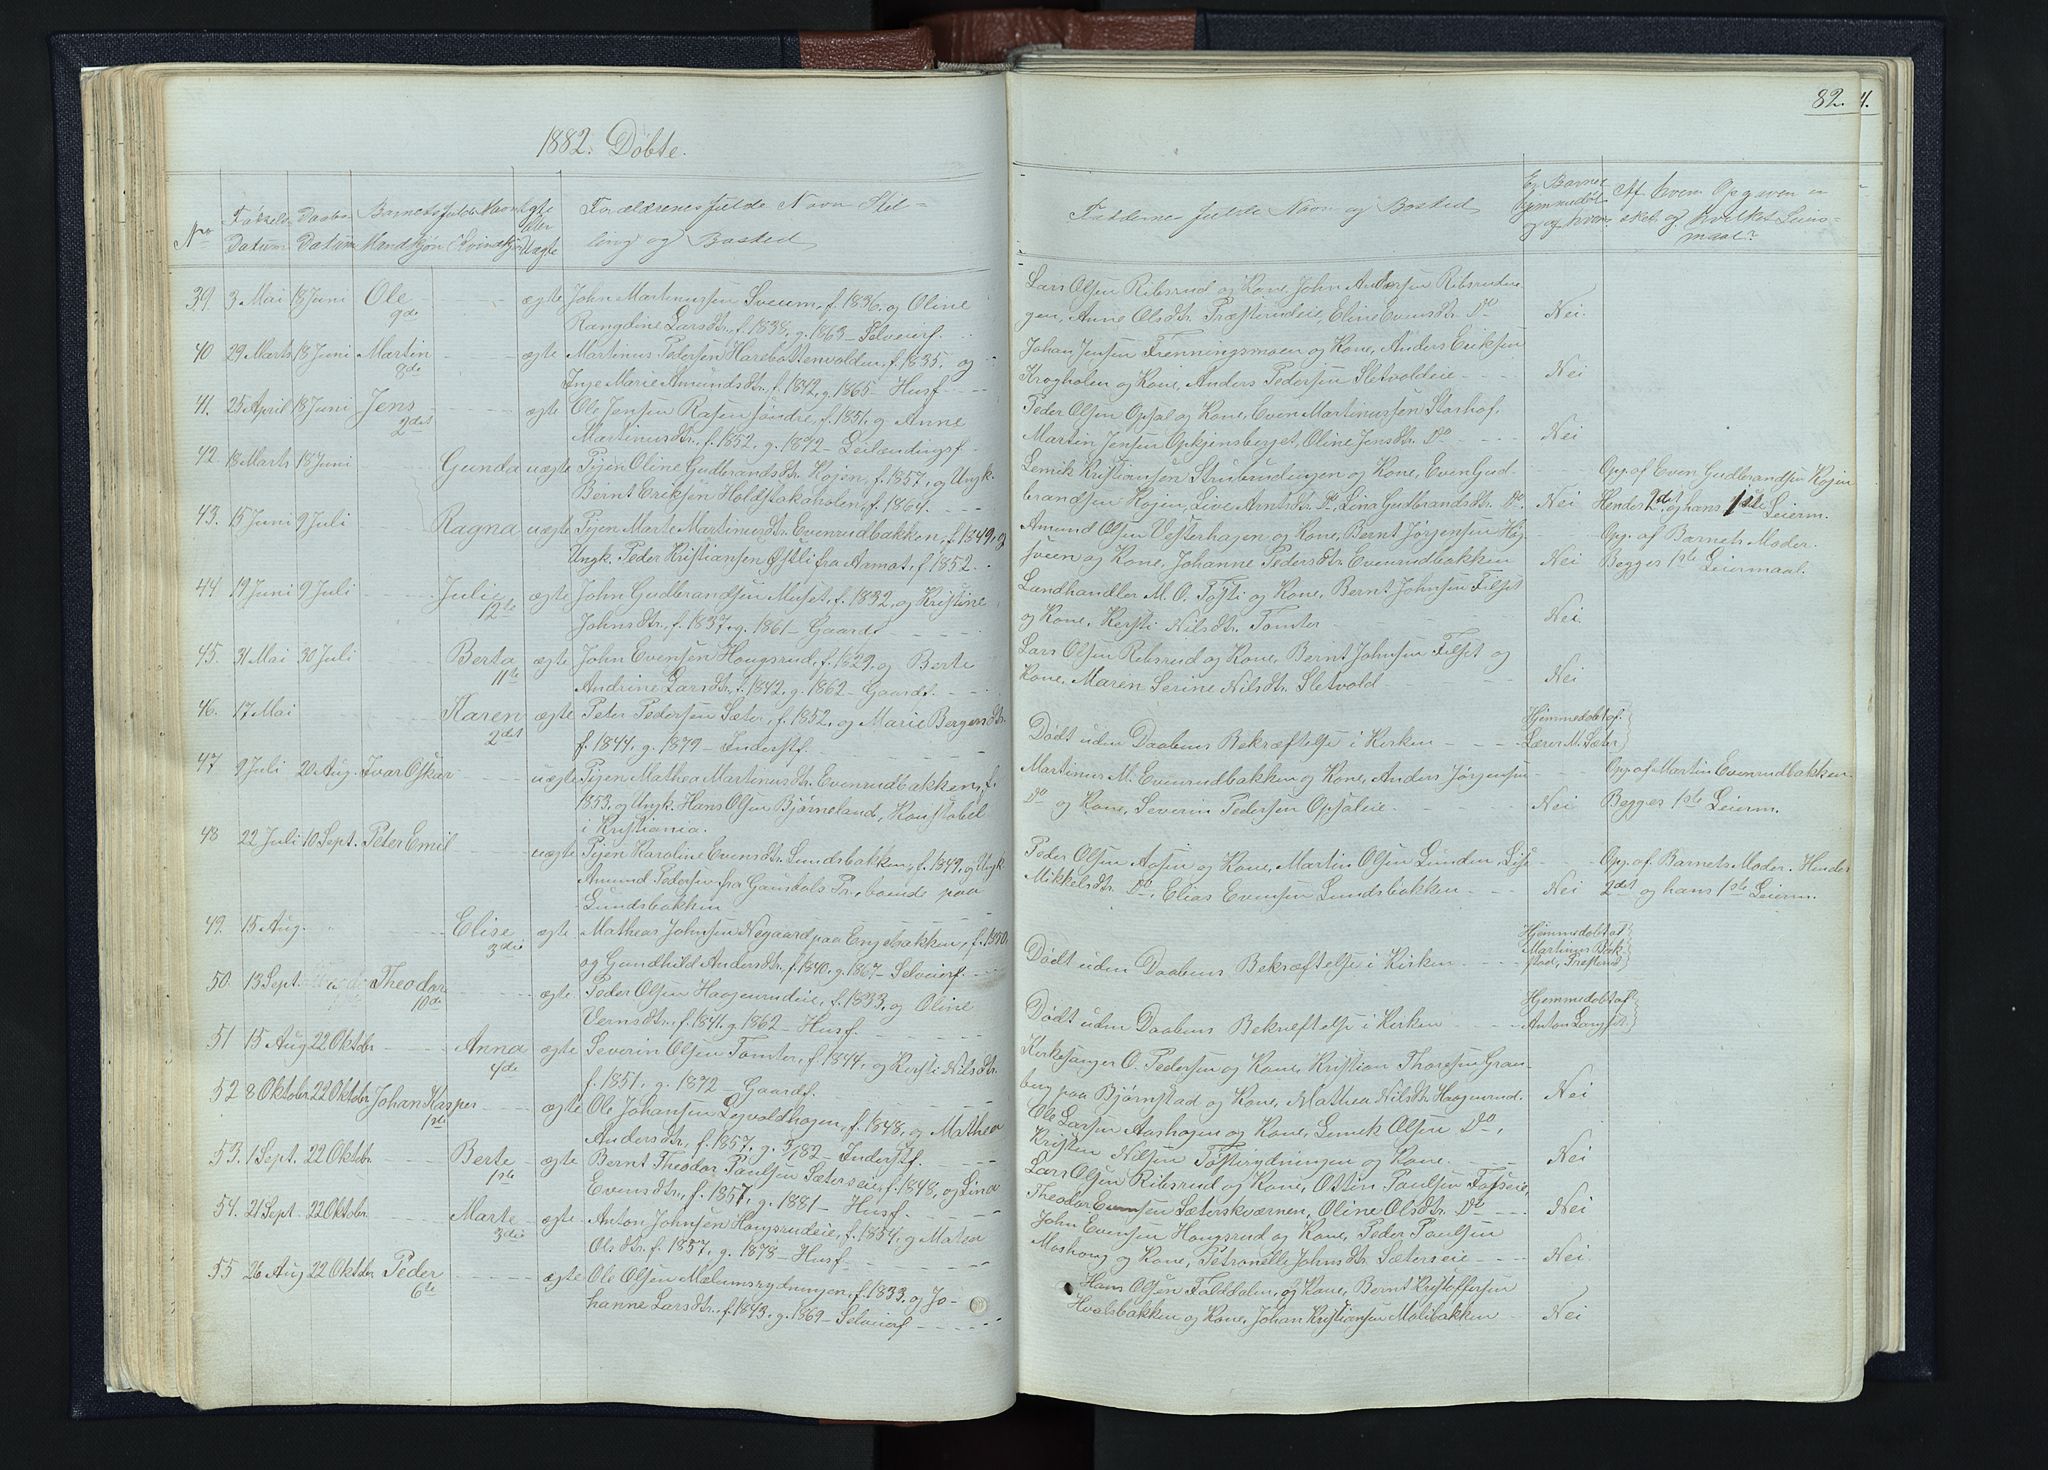 82. 4.
1882. Døbte.
No
Fødsels Datum
Daabs Datum
Barnets fulde Navn
Mandkjøn Kvindkjøn
Ægte eller Uægte
Forældrenes fulde Navn Stil-
ling og Bosted
Faddernes fulde Navn og Bosted
Er Barnet hjemmedøbt og af hvem
Af hvem Opgiven er skeet og hvilket Leier-
maal?
39. 3 Mai 18 Juni Ole 9de ægte John Martinussen Sveum, f. 1836, og Oline
Rangdine Larsdtr., f. 1838, g. 1863 - Selveierf.
Lars Olsen Ribsrud og Kone, John Andersen Ribsrudeie-
gen, Anne Olsdtr. Præsterudeie, Eline Evensdtr. Do Nei.
40 29 Marts 18 Juni Martin 8de ægte Martinus Pedersen Harebottenvolden, f. 1835, og
Inge Marie Amundsdtr., f. 1842, g. 1865 - Husf.
Johan Jensen Frenningsmoen og Kone, Anders Eriksen
Krogholen og Kone, Anders Pedersen Sletvoldeie Nei
41. 25 April 18 Juni Jens 2det ægte Ole Jensen Rasen søndre, f. 1851, og Anne
Martinusdtr., f. 1852, g. 1872 - Leilændingsf.
Peder Olsen Opsal og Kone, Even Martinussen Storhof,
Martin Jensen Opkjensberget, Oline Jensdtr. Do Nei
42. 18 Marts 18 Juni Gunda uægte Pigen Oline Gudbrandsdtr. Køjen, f. 1857, og Ungk.
Bernt Eriksen Holdstakaholen, f. 1864.
Lemik Kristiansen Strubrudingen og Kone, Even Gud-
brandsen Køjen, Live Arntsdtr. Do, Lina Gudbrandsdtr. Do. Nei
Opg. af Even Gudbrandsen Køjen
Hendes 2det, og hans 1ste Leierm.
43. 15 Juni 9 Juli Ragna uægte Pigen Marte Martinusdtr. Evenrudbakken, f. 1849, og
Ungk. Peder Kristiansen Østli fra Aamot, f. 1852.
Amund Olsen Vesterhagen og Kone, Bernt Jørgensen Høg-
sveen og Kone, Johanne Pedersdtr. Evenrudbakken Nei
Opg. af Barnets Moder.
Begges 1ste Leiermaal.
44 19 Juni 9 Juli Julie 12te ægte John Gudbrandsen Muset, f. 1832, og Kristine
Johnsdtr., f. 1837, g. 1861 - Gaardf.
Landhandler M. O. Tøfti og Kone, Bernt Johnsen Filset
og Kone, Kersti Nilsdtr. Tomter Nei.
45. 31 Mai 30 Juli Berta 11te ægte John Evensen Hougsrud, f. 1829, og Berte
Andrine Larsdtr., f. 1842, g. 1862 - Gaardf.
Lars Olsen Ribsrud og Kone, Bernt Johnsen Filset og
Kone, Maren Serine Nilsdtr. Sletvold Nei
46. 17 Mai Karen 2det ægte Peter Pedersen Sæter, f. 1852, og Marie Bergersdtr.
f. 1844, g. 1879 - Inderstf.
Dødt uden Daabens Bekræftelse i Kirken
Hjemmedøbt af
Lærer M. Sæter
47 9 Juli 20 Aug. Ivar Oskar uægte Pigen Mathea Martinusdtr. Evenrudbakken, f.
1853, og Ungk. Hans Olsen Bjørneland, Konstabel
i Kristiania.
Martinus M. Evenrudbakken og Kone, Anders Jørgensen
Do og Kone, Severin Pedersen Opsaleie Nei
Opg. af Martin Evenrudbakken.
Begges 1ste Leierm.
48 22 Juli 10 Sept. Peter Emil uægte Pigen Karoline Evensdtr. Lundsbakken, f. 1849, og Ungk.
Amund Pedersen fra Gausdals Pr., boende paa
Lundsbakken
Peder Olsen Aasen og Kone, Martin Olsen Lunden, Lise
Mikkelsdtr. Do, Elias Evensen Lundsbakken Nei
Opg. af Barnets Moder. Hendes
2det og hans 1ste Leierm.
49. 15 Aug. Elise 3die ægte Mathias Johnsen Negaard paa Engebakken, f. 1850,
og Gundhild Andersdtr. f. 1840, g. 1867 - Selveierf.
Dødt uden Daabens Bekræftelse i Kirken
Hjemmedøbt af
Martinus Bak-
stad,
50 13 Sept. Theodor 10de ægte Peder Olsen Haagenrudeie, f. 1833, og Oline
Vernsdtr., f. 1841, g. 1862 - Husf.
Dødt uden Daabens Bekræftelse i Kirken
Hjemmedøbt af
Anton
51 15 Aug 22 Oktobr. Anna 4de ægte Severin Olsen Tomter, f. 1844, og Kersti Nilsdtr.
f. 1851, g. 1872 - Gaardf.
Kirkesanger O. Pedersen og Kone, Kristian Thoresen Gran-
berg paa Bjørnstad og Kone, Mathea Nilsdtr. Haagenrud. Nei
52 8 Oktober 22 Oktobr Johan Kasper 1ste ægte Ole Johansen Løgvoldhagen, f. 1848, og Mathea
Andersdtr., f. 1857, g. 7/82 - Inderstf.
Ole Larsen Aashagen og Kone, Lemek Olsen Do,
Kristen Nilsen Tøftirydningen og Kone. Nei
53. 1 Sept. 22 Oktbr. Berte 1ste ægte Bernt Theodor Paulsen Sæterseie, f. 1848, og Lina
Evensdtr., f. 1857, g. 1881 - Husf.
Lars Olsen Ribsrud og Kone, Ottin Paulsen Fosseie,
Theodor Evensen Sæterskværnen, Oline Olsdtr. Do Nei
54. 21 Sept. 22 Oktobr. Marte 3die ægte Anton Johnsen Hougsrudeie, f. 1854, og Matea
Olsdtr. f. 1857, g. 1878 - Husf.
John Evensen Hougsrud og Kone, Peder Paulsen
Moshoug og Kone, Petronelle Johnsdtr. Sæterseie Nei
55 26 Aug 22 Oktobr Peder 6te ægte Ole Olsen Mælumsrydningen, f. 1833, og Jo-
hanne Larsdtr., f. 1843, g. 1869 - Selveierf
Hans Olsen Falddalen, og Kone, Bernt Kristoffersen
Hvalsbakken og Kone, Johan Kristiansen Molibakken Nei